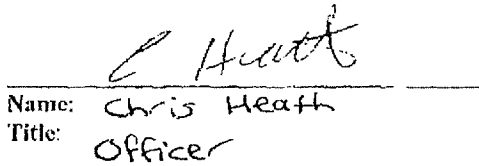 C Heath
Name: Chris Heath
Title: Officer